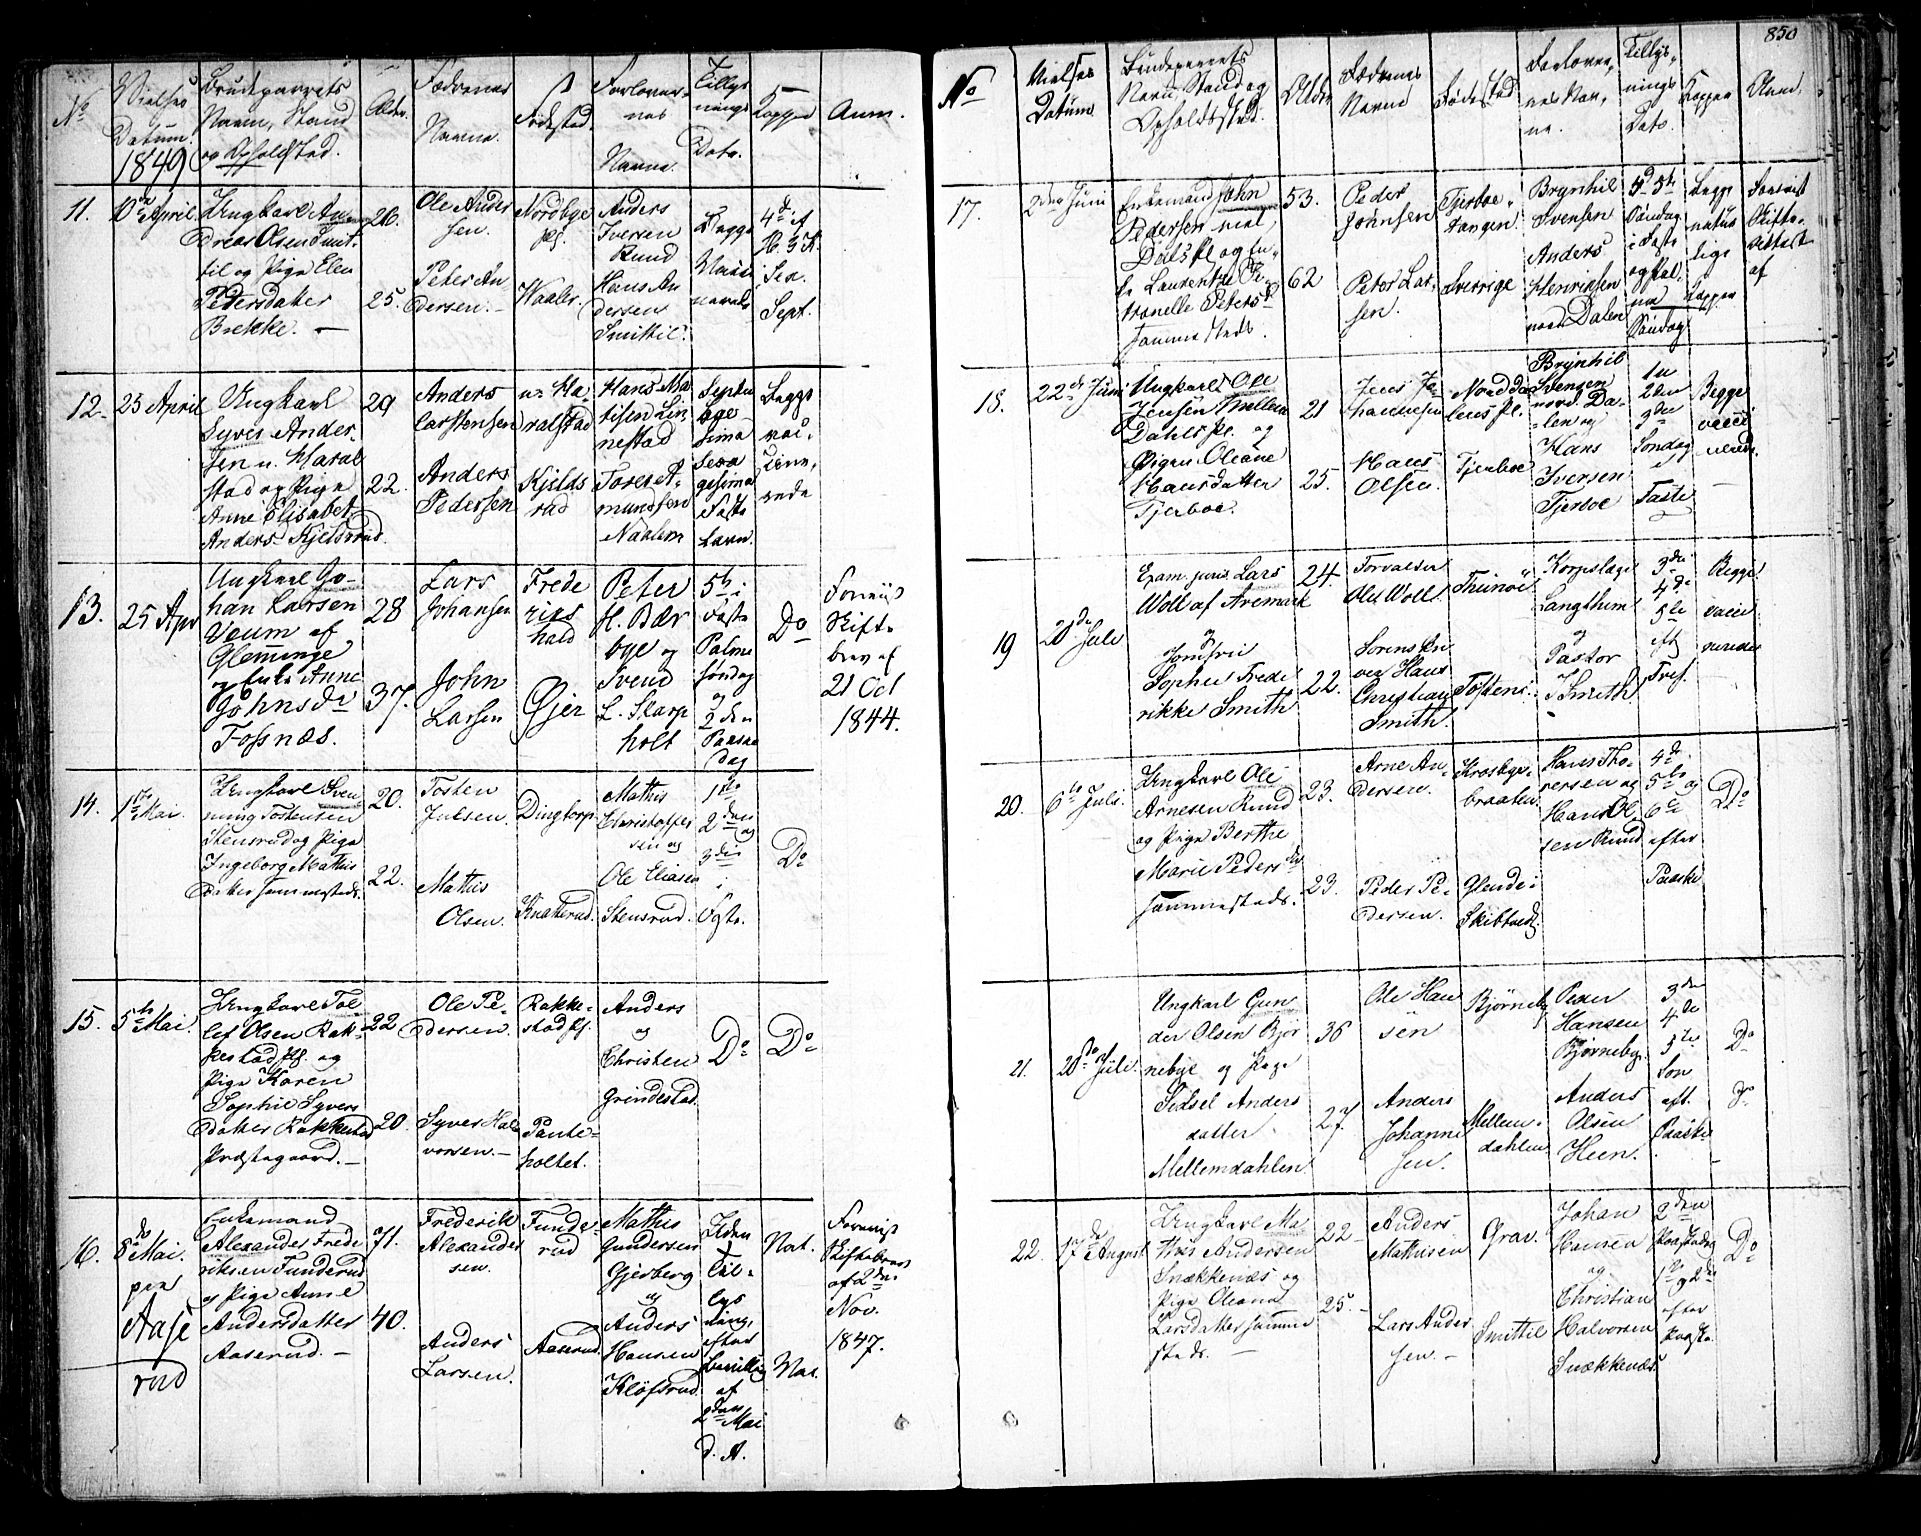 850
No
Vielses Datum. 1849
Brudeparrets Navn, Stand og Opholdsted.
Alder.
Fædrenes Navne.
Fødested.
Forlovernes Navne.
Tillysnings Dato.
Kopper
Anm.
11.
10de April
Ungkarl Andreas Olsen Smittil og Pige Elen Pedersdatter Brekke. —
26.
25.
Ole Andersen.
Peter Andersen. —
Nordbye
Waaler.
Anders Iversen Rund
Hans Andersen Smittil.
Begge
4de
Sept.
12.
25 April
Ungkarl Syver Andersen n. Haralstad og Pige Anne Elisabet Anders. Kjelsrud.
29
22.
Anders Carstensen
Anders Pedersen
n. Haralstad
Kjelds rud
Hans Matisen Linnestad
Tores Amundsen Naalem
Septuagesima Sexagesima Fastelavn.
Begge vaccinerede
13.
25 Apr
Ungkarl Johan Larsen Veum af Glemminge og Enke Anne Johnsdr Fossnæs.
28
37.
Lars Johansen
John Larsen
Frederikshald
Øjer
Peter H. Bærbye og Svend L. Skarpholt
5te i Faste Palmesøndag og 2den Paaskedag
Do
Foreviist Skiftebrev af 21 Oct 1844.
14.
1ste Mai.
Ungkarl Svenning Tostensen Stensrud og Pige Ingeborg Mathisdatter sammesteds.
20.
22.
Tosten Julsen
Mathis Olsen.
Dingtorp
Knatterud.
Mathis Christoffersen og
Ole Eliasen Stensrud.
1ste 2den og 3die i Faste.
Do
15.
5te Mai.
Ungkarl Tollef Olsen Rakkestad og Pige Karen Sophie Syversdatter Rakkestad Præstegaard. —
22
20.
Ole Pedersen.
Syver Halvorsen. —
Rakkestad
Panteholtet.
Anders og Christen Grindestad.
Do
Do
16.
8de Mai.
paa Aaserud
Enkemand Alexander Frederiksen Funderud og Pige Anne Andersdatter Aaserud. —
71.
40.
Frederik Alexandersen.
Anders Larsen.
Funderud
Aaserud.
Mathis Gundersen Gjerberg og Anders Hansen Kløfsrud.
Uden Tillysning, efter Bevilling af 2den Mai d. A.
Nat.
Nat.
Foreviist Skiftebrev af 2den Nov. 1847.
No
Vielses Datum
Brudeparrets Navn, Stand og Opholdsted.
Alder
Fædrenes Navne
Fødested
Forlovernes Navne.
Tillysnings Dato.
Kopper
Anm.
17.
2den Juni
Enkemand John Pedersen og Enke Laurentze Petronelle Petersd sammesteds.
53.
62
Peder Johnsen
Peter Larsen.
Tjerboetangen
Sverrige
Brynhil Svensen
Anders Henriksen nord Dalen
5te Søndag i Faste og Palme Søndag
Begge naturlige Kopper
Foreviist Skifteattest af
18.
22de Juni
Ungkarl Ole Jensen Mellem Dahls Pl. og Pigen Oleane Hansdatter Tjerboe.
21
25.
Jens Johannesen
Hans Olsen
Nord Dalens Pl.
Tjerboe
Brynhil Svensen nord. Dalen og Hans Iversen Tjerboe
1ste 2den 3die Søndag i Faste
Begge vaccinerede
—
19
20de Juli
Exam. juris. Lars Woll af Aremark og Jomfrue Sophie Frederikke Smith
24.
22.
Forvalter Ole Woll.
Sorenskriver Hans Christian Smith.
Thunøe
Tostens.
Korpslæge Langthum og Pastor J Smith
3die 4de 5te eft Tref.
Begge vaccinerede
20.
6te Juli.
Ungkarl Ole Arnesen Rund og Pige Berthe Marie Pedersdr sammesteds.
23.
23.
Arne Andersen.
Peder Pedersen.
Krosbybraaten.
Glende i Skibtvedt.
Hans Thoresen og Hans Olsen Rund
4de 5te og 6te efter Paaske
Do
21.
20de Juli.
Ungkarl Gunder Olsen Bjørnebye og Pige Sidsel Andersdatter Mellemdahlen
36
27.
Ole Hansen
Anders Johannesen.
Bjørneby
Mellemdahlen
Peder Hansen Bjørneby.
Anders Olsen Heen.
3die 4de 5te Søn eft. Paaske
Do
22.
17de August
Ungkarl Mathis Andersen Snækkenæs og Pige Oleane Larsdatter sammesteds. —
22
25.
Anders Mathisen
Lars Andersen. —
Grav.
Smittil
Johan Hansen og Christian Halvorsen Snækkenæs
2den Paaskedag 1ste og 2den efter Paaske.
Do